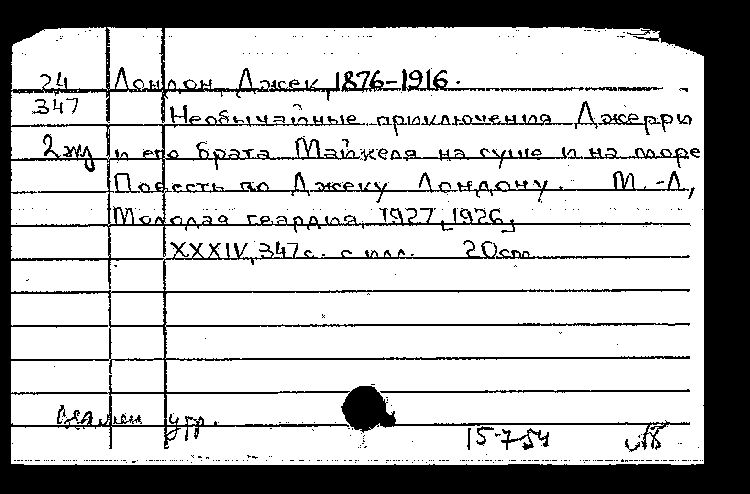 24 Лондон, Джек, 1876-1916.
347 Необычайные приключения Джерри
2 экз и его брата Майкеля на суше и на море
Повесть по Джеку Лондону. М.-Л.,
Молодая гвардия, 1927, [1926]
XXXIV, 347с. с илл. 20см
Взамен утр.
15-7-54